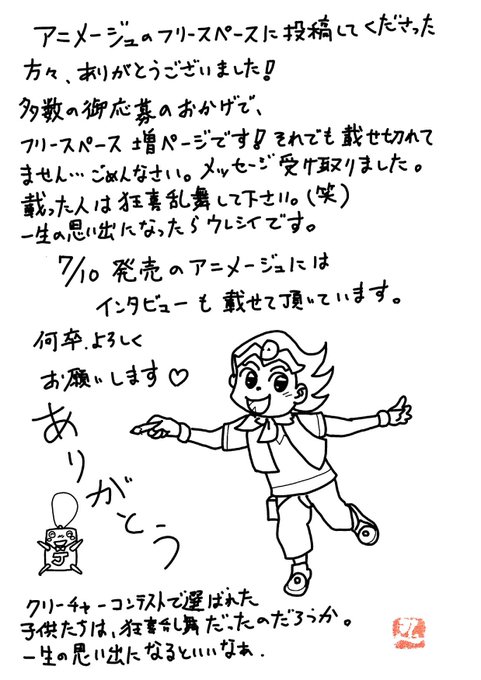 アニメージュのフリースペースに投稿してくださった
方々、ありがとうございました!
多数の御応募のおかげで、
フリースペース増ページです!それでも載せ切れて
ません…ごめんなさい。メッセージ受け取りました。
載った人は狂喜乱舞して下さい。(笑)
一生の思い出になったらウレシイです。
7/10発売のアニメージュには
インタビューも載せて頂いています。
何卒、よろしく
お願いします♡
ありがとう
クリーチャーコンテストで選ばれた
子供たちは、狂喜乱舞だったのだろうか。
一生の思い出になるといいなぁ.